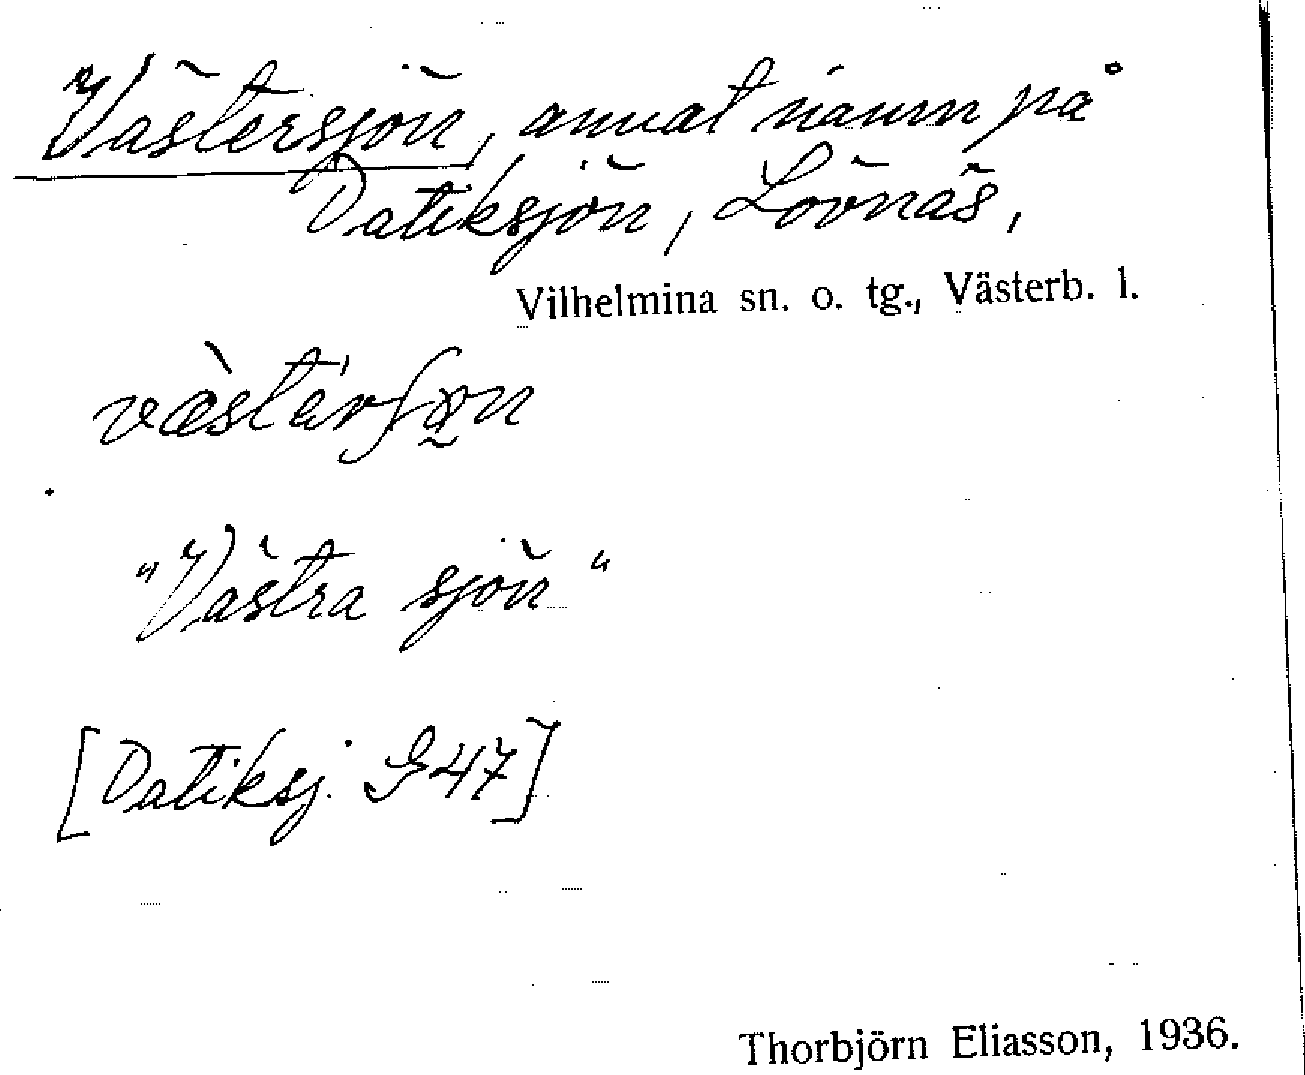 Västersjön, annat namn på
Datiksjön, Lövnäs,
Vilhelmina sn. o. tg., Västerb. l.
væ̀stérʃø̰n
"Västra sjön"
[Datiksj. G 47]
Thorbjörn Eliasson, 1936.